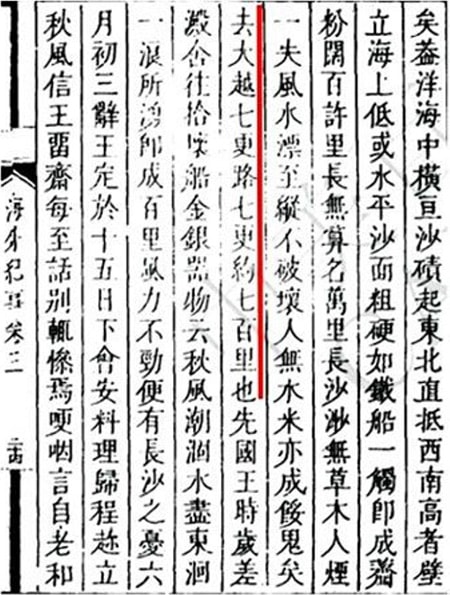 矣葢洋海中橫亘沙磧起東北直抵西南高者壁
立海上低或水平沙面粗硬如鐵船一觸即成齏
粉闊百許里長無算名萬里長沙渺無草木人煙
一失風水漂至縱不破壞人無水米亦成餒鬼矣
去大越七更路七更約七百里也先國王時歲差
澱舍往拾壞船金銀器物云秋風潮涸水盡東洄
一浪所湧即成百里風力不勁便有長沙之憂六
月初三辭王定於十五日下會安料理歸程趂立
秋風信王畱齋每至話別輒慘焉哽咽言自老和
海外紀事卷三